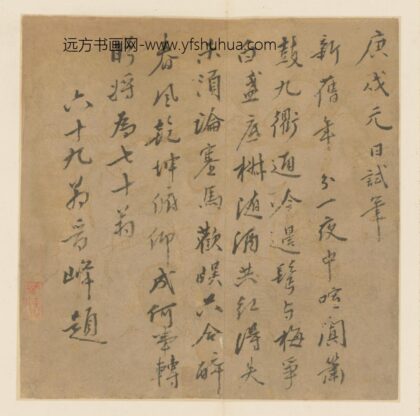 远方书画网-www.yfshuhua.com
庚戌元日試筆
新舊年分一夜中喧闐簫
鼓九衢通冷邊鬢与梅爭
白盞底椒随酒共紅得失
未須論塞馬歡娱合醉
春風乾坤俯仰成何事轉
盼將為七十翁
六十九翁峰題